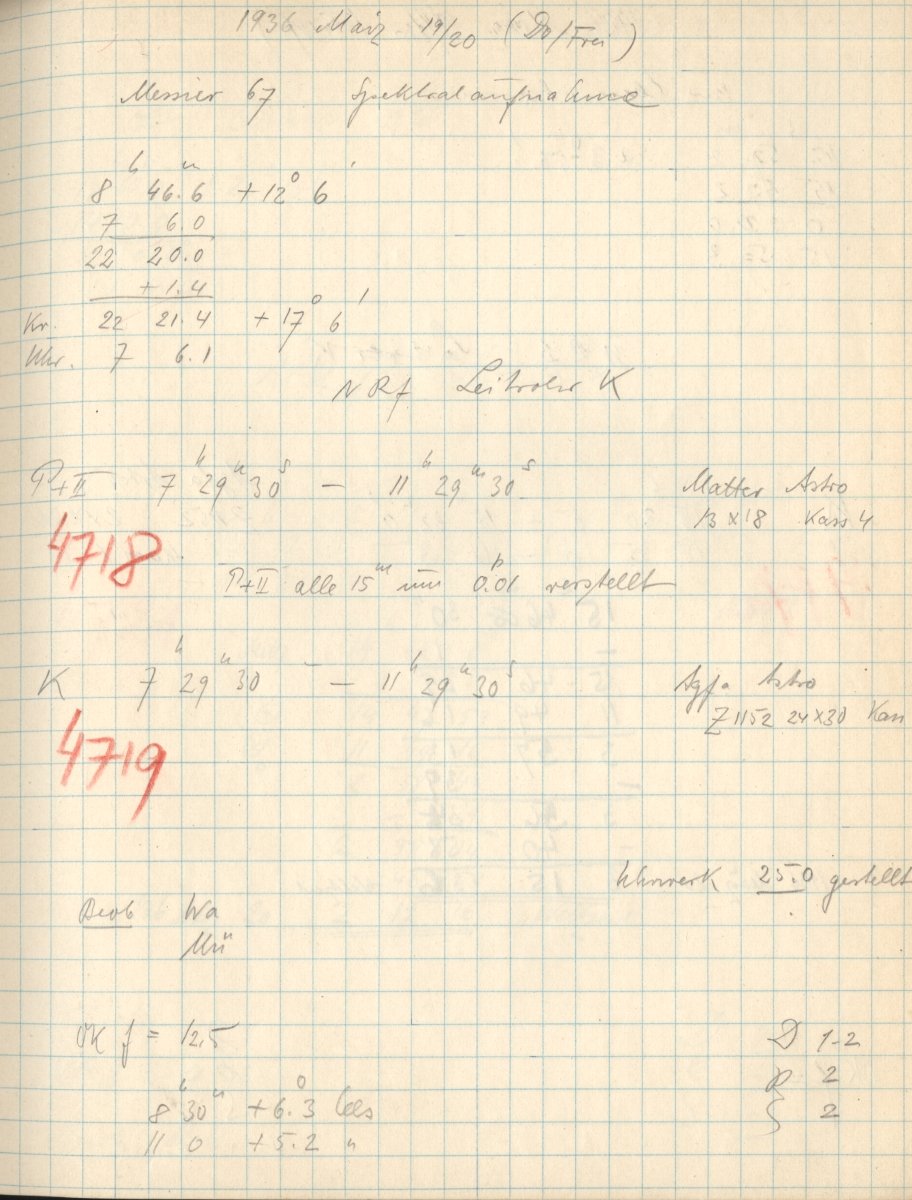 1936 März 19/20 (Do/Frei)
Messier 67 Spektralaufnahme
8ʰ 46.6ᵐ +12° 6'
7 6.0
22 20.0
+1.4
Kr. 22 21.4 +17° 6'
Uhr. 7 6.1
NRf Leitrohr K
P+II 7ʰ 29ᵐ 30ˢ — 11ʰ 29ᵐ 30ˢ Matter Astro
13 x 18 Kass 4
4718
P+II alle 15ᵐ um 0.01 verstellt
K 7ʰ 29ᵐ 30 — 11ʰ 29ᵐ 30ˢ Agfa Astro
Z 1152 24x30 Kass
4719
Uhrwerk 25.0 gestellt
Beob Wa
Mü
OK f = 12,5
D 1-2
2
8ʰ 30ᵐ +6.°3 Cels
2
11 0 +5.2 "